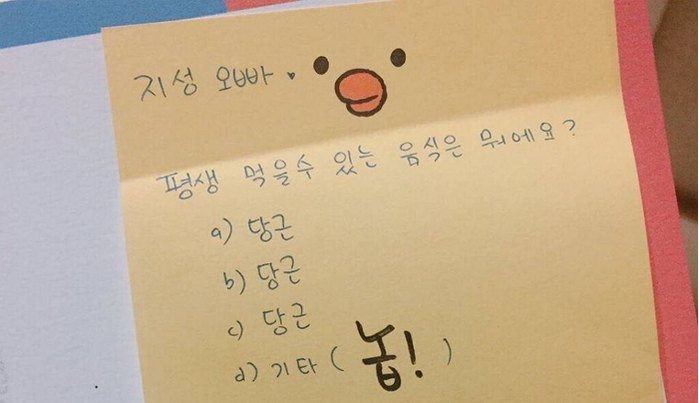 지성 오빠 ♥
평생 먹을수 있는 음식은 뭐에요?
a) 당근
b) 당근
c) 당근
d) 기타 ( 놉! )